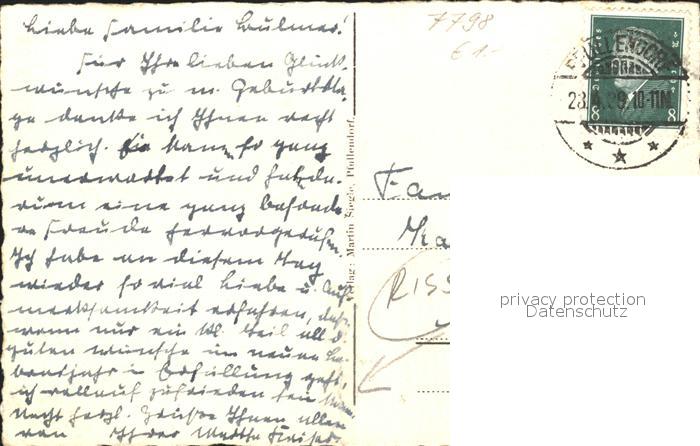 Liebe Familie Bulmer!
Für Ihre lieben Glück-
wünsche zu m. Geburtsta-
ge danke ich Ihnen recht
herzlich. Sie kamen so ganz
unerwartet und haben da-
rum eine ganz besonde-
re Freude hervorgerufen.
Ich habe an diesem Tag
wieder so viel Liebe u. Auf-
merksamkeit erfahren, daß,
wenn nur ein kl. Teil all d.
guten Wünsche im neuen Le-
bensjahr in Erfüllung geht,
ich vollauf zufrieden sein kann.
Recht herzl. Grüße Ihnen allen
von Ihrer Martha
Verlag: Martin Siegle, Pfullendorf.
7798
€ 1.-
PFULLENDORF
10-11N
8 8
Fam
RISS
privacy protection
Datenschutz